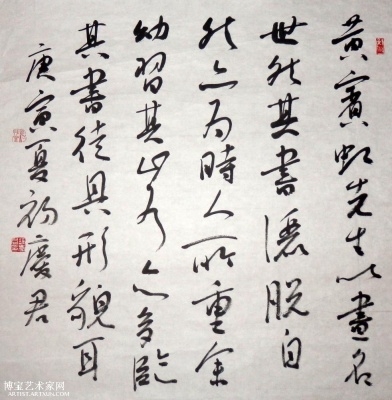 黄賓虹先生以畫名
世然其書灑脱自
然亦为時人所重余
幼習其山水亦多臨
其書徒具形貌耳
庚寅夏初慶君
博宝艺术家网
ARTIST.ARTXUN.COM